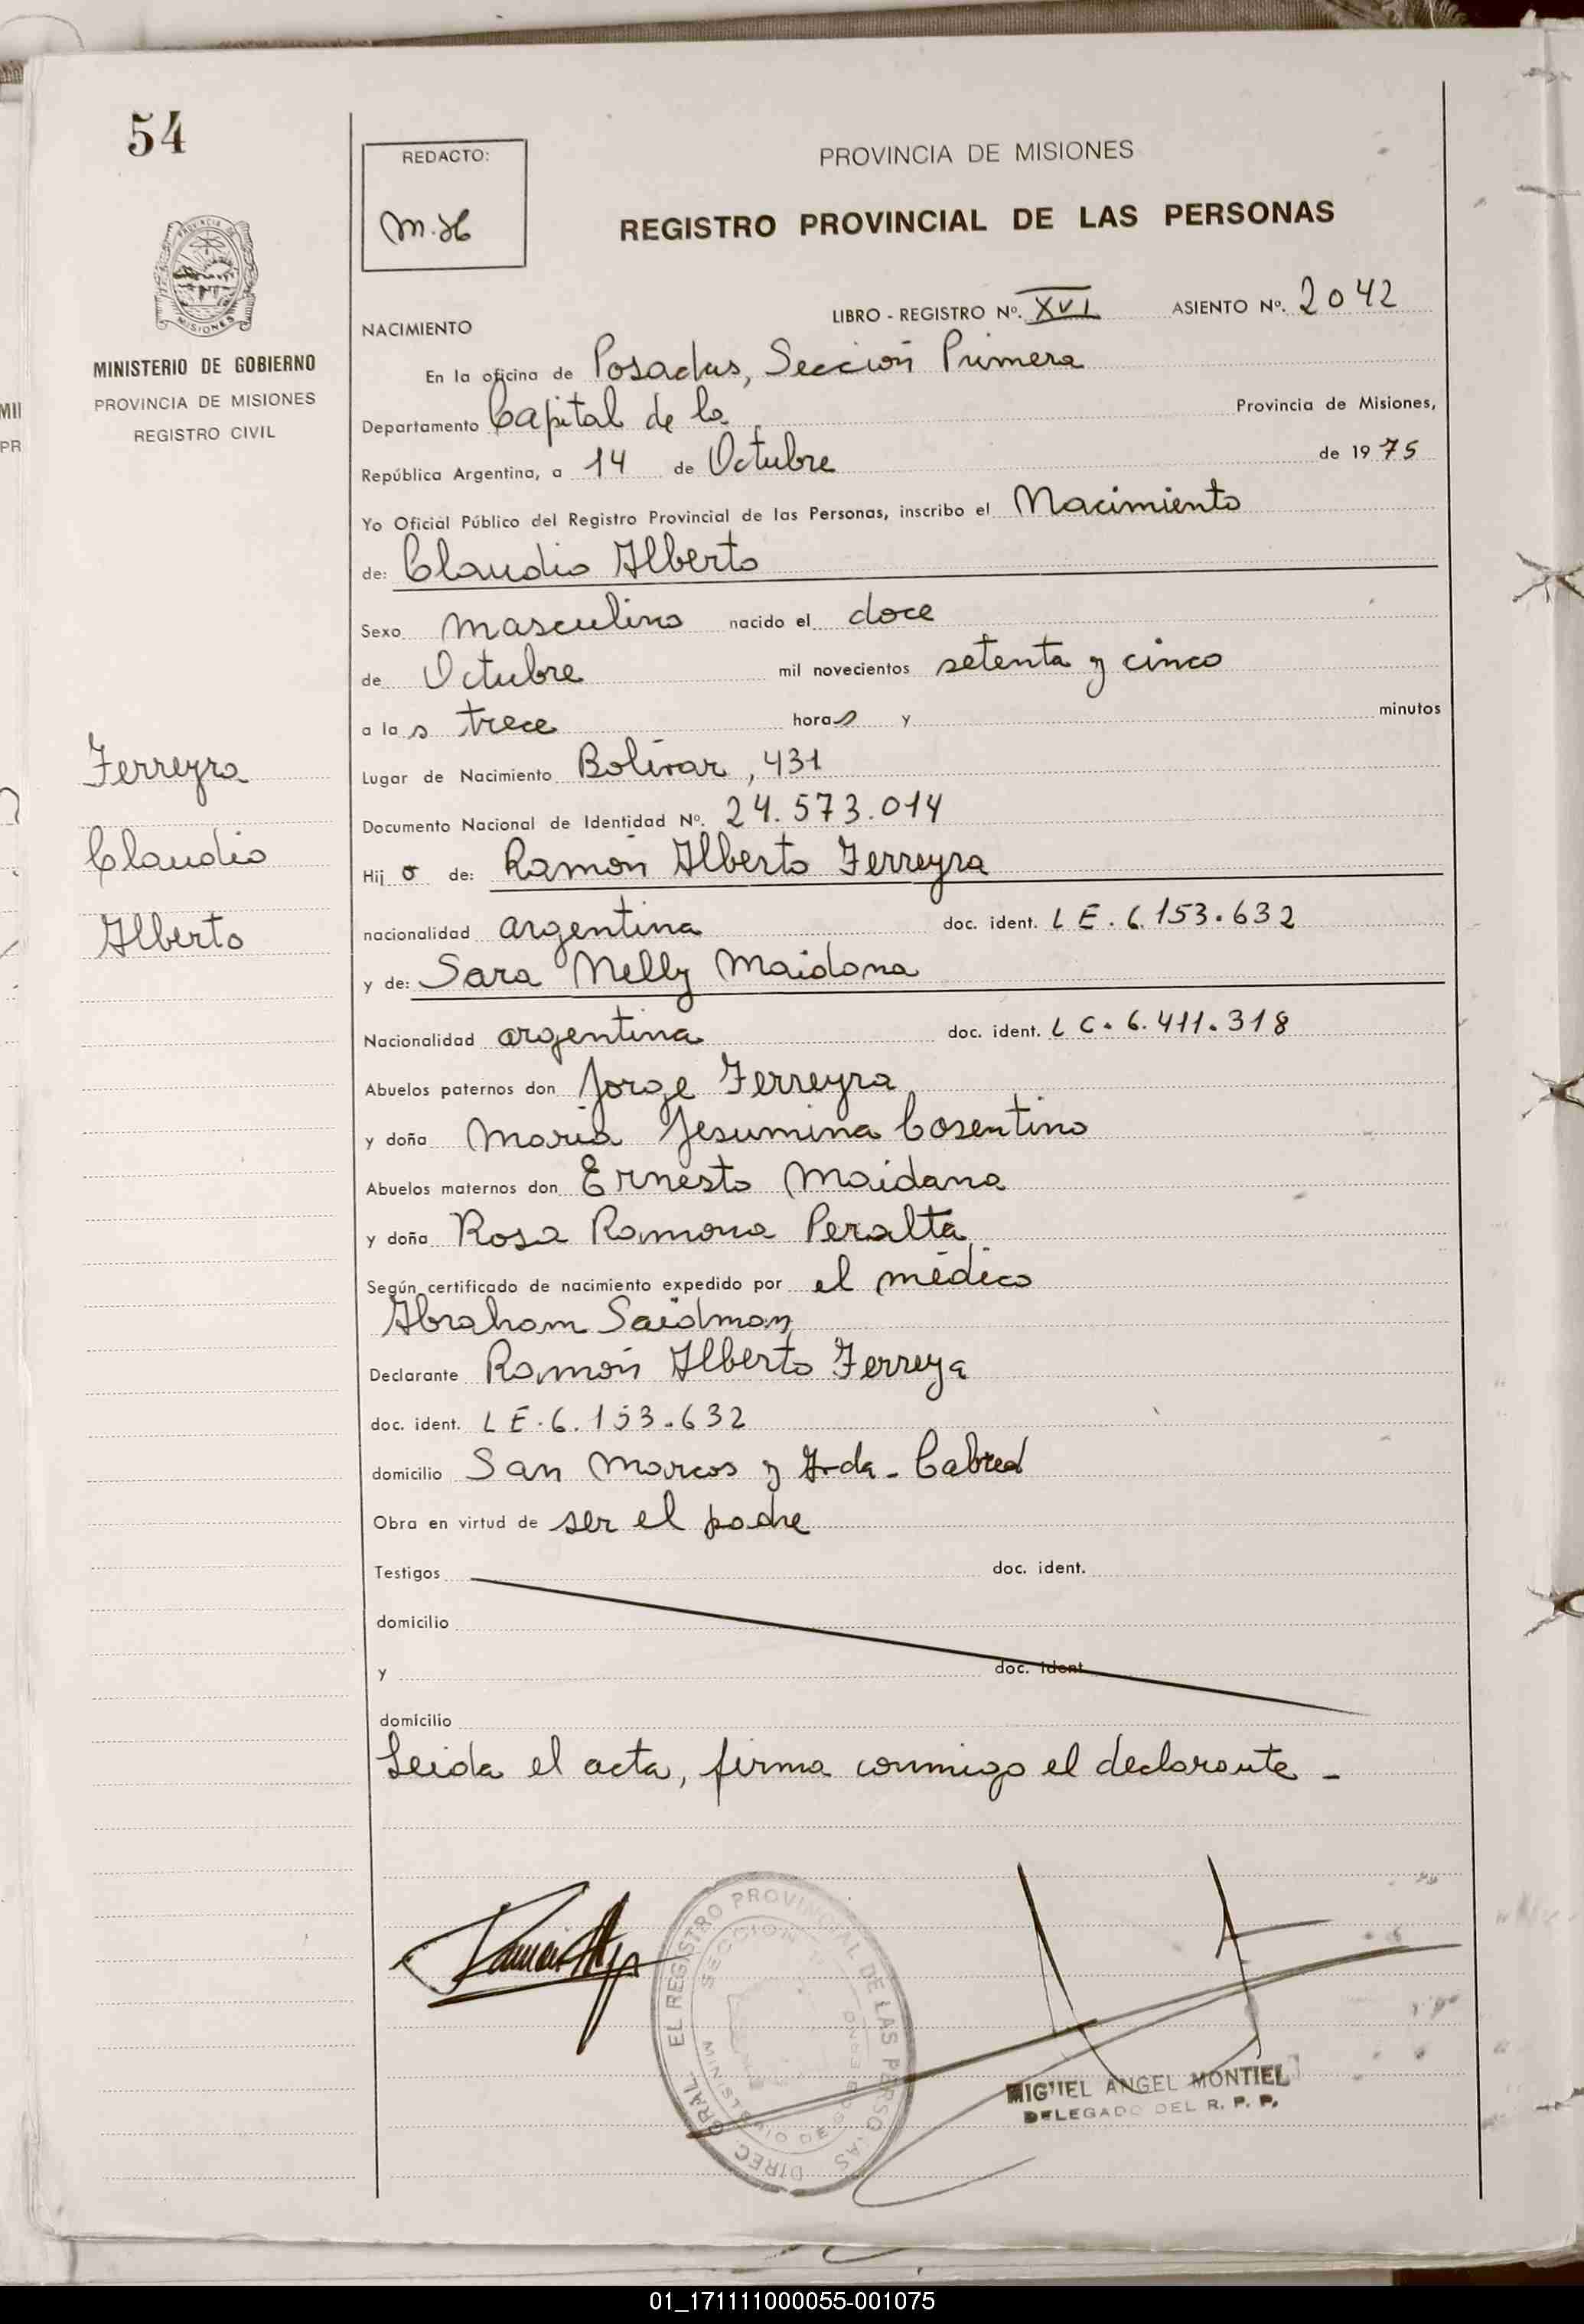 54
REDACTO:
M.H
PROVINCIA DE MISIONES
REGISTRO PROVINCIAL DE LAS PERSONAS
MINISTERIO DE GOBIERNO
PROVINCIA DE MISIONES
REGISTRO CIVIL
Ferreyra
Claudio
Alberto
LIBRO - REGISTRO Nº. XVI ASIENTO Nº. 2042
NACIMIENTO
En la oficina de Posadas, Sección Primera
Departamento Capital de la Provincia de Misiones,
República Argentina, a 14 de Octubre de 1975
Yo Oficial Público del Registro Provincial de las Personas, inscribo el Nacimiento
de: Claudio Alberto
Sexo masculino nacido el doce
de Octubre mil novecientos setenta y cinco
a las trece horas y minutos
Lugar de Nacimiento Bolívar, 431
Documento Nacional de Identidad Nº. 24.573.014
Hijo de: Ramón Alberto Ferreyra
nacionalidad argentina doc. ident. LE. 6.153.632
y de: Sara Nelly Maidana
Nacionalidad argentina doc. ident. LC. 6.411.318
Abuelos paternos don Jorge Ferreyra
y doña María Jesumina Cosentino
Abuelos maternos don Ernesto Maidana
y doña Rosa Ramona Peralta
Según certificado de nacimiento expedido por el médico
Abraham Saidman
Declarante Ramón Alberto Ferreya
doc. ident. LE. 6.153.632
domicilio San Marcos y Avda. Cabred
Obra en virtud de ser el padre
Testigos doc. ident.
domicilio
y doc. ident.
domicilio
Leida el acta, firma conmigo el declarante -
DIREC. GRAL. EL REGISTRO PROVINCIAL DE LAS PERSONAS
SECCION
MINISTERIO DE GOBIERNO
MIGUEL ANGEL MONTIEL
DELEGADO DEL R. P. P.
01_171111000055-001075